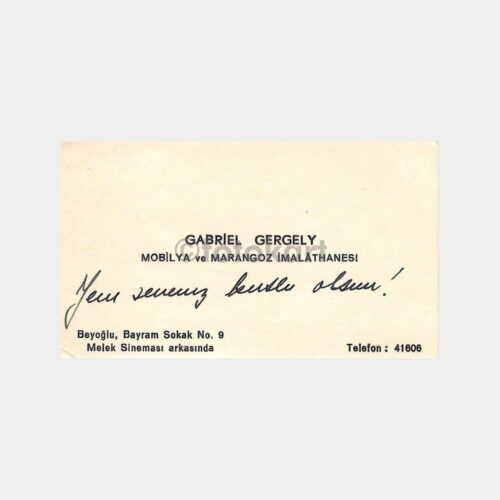 GABRİEL GERGELY
©fotokart
MOBİLYA ve MARANGOZ İMALÂTHANESİ
Yeni seneniz kutlu olsun!
Beyoğlu, Bayram Sokak No. 9
Melek Sineması arkasında
Telefon : 41606